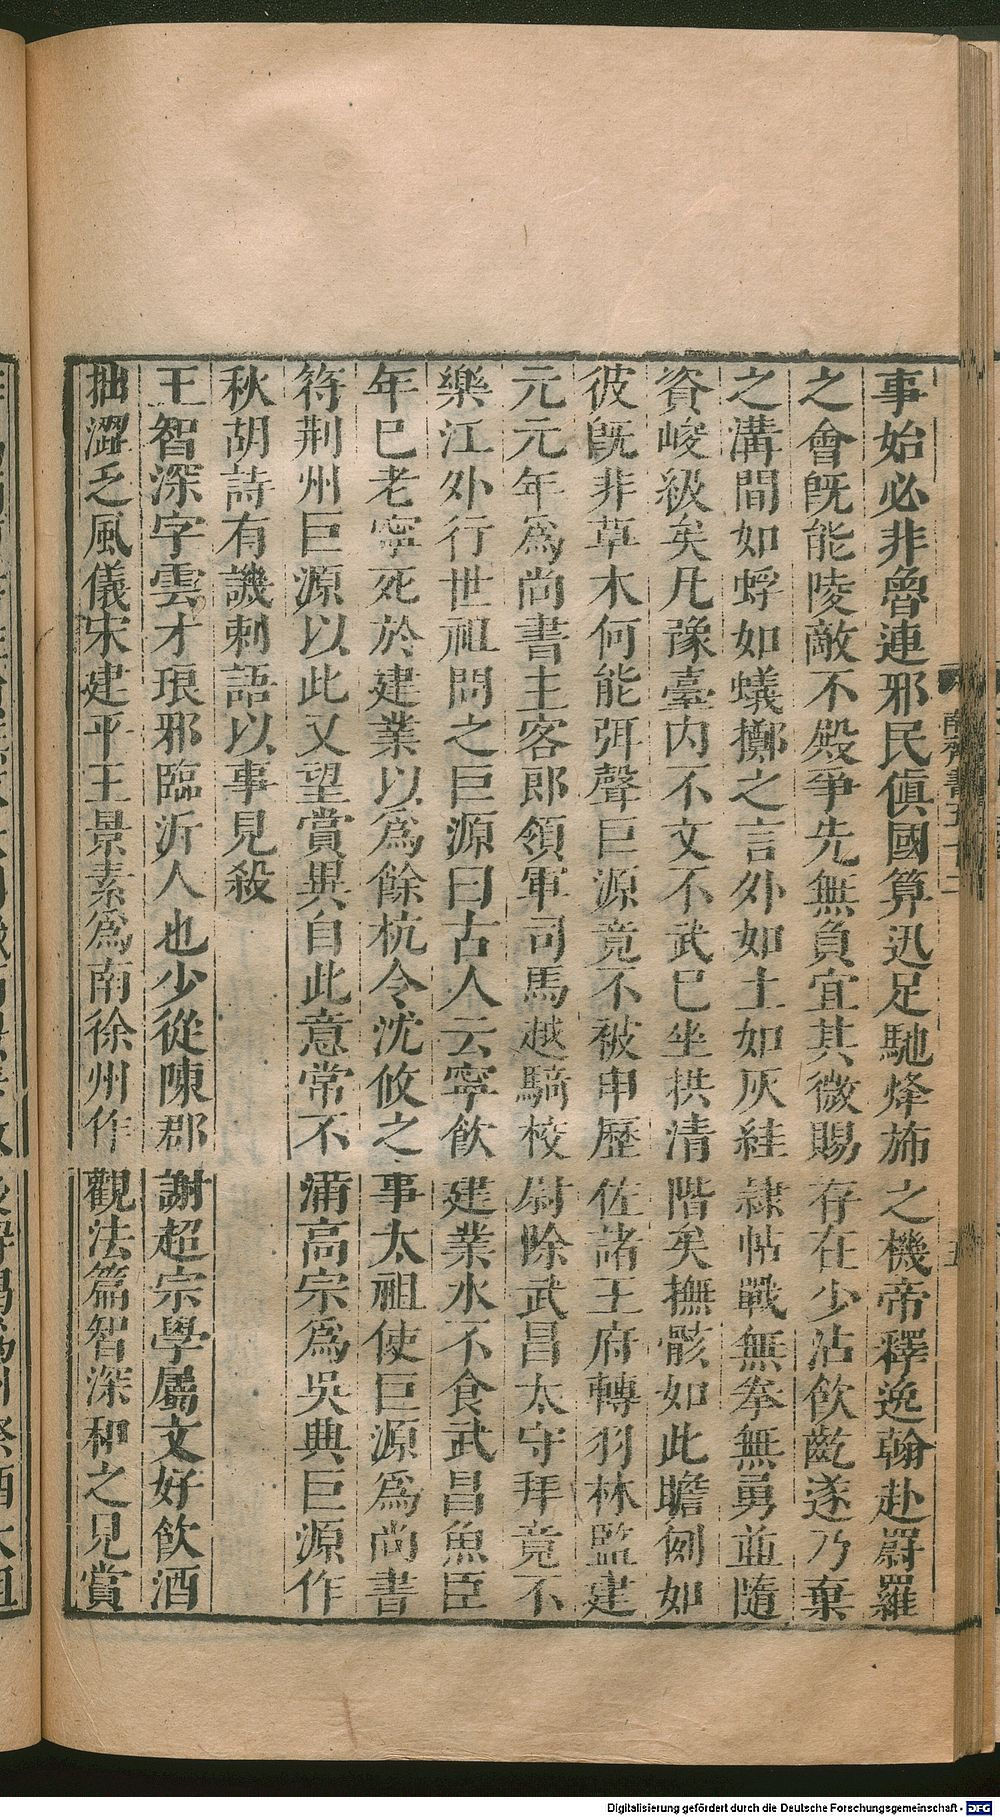 事始必非魯連邪民傎國算迅足馳烽斾之機帝釋逸翰赴罻羅
之會旣能陵敵不殿爭先無負宜其微賜存在少沾飮齕遂乃棄
之溝間如蜉如蟻擲之言外如土如灰絓隷帖戰無拳無勇並隨
資峻級矣凡豫臺内不文不武已坐拱清階矣撫骸如此瞻例如
彼旣非草木何能弭聲巨源竟不被申歷佐諸王府轉羽林監建
元元年爲尚書主客郎領軍司馬越騎校尉除武昌太守拜竟不
樂江外行世祖問之巨源曰古人云寧飮建業水不食武昌魚臣
年已老寧死於建業以爲餘杭令沈攸之事太祖使巨源爲尚書
符荆州巨源以此又望賞異自此意常不滿高宗爲吳興巨源作
秋胡詩有譏刺語以事見殺
王智深字雲才琅邪臨沂人也少從陳郡謝超宗學屬文好飮酒
拙澀乏風儀宋建平王景素爲南徐州作觀法篇智深和之見賞
南齊書五十二
五
Digitalisierung gefördert durch die Deutsche Forschungsgemeinschaft - DFG